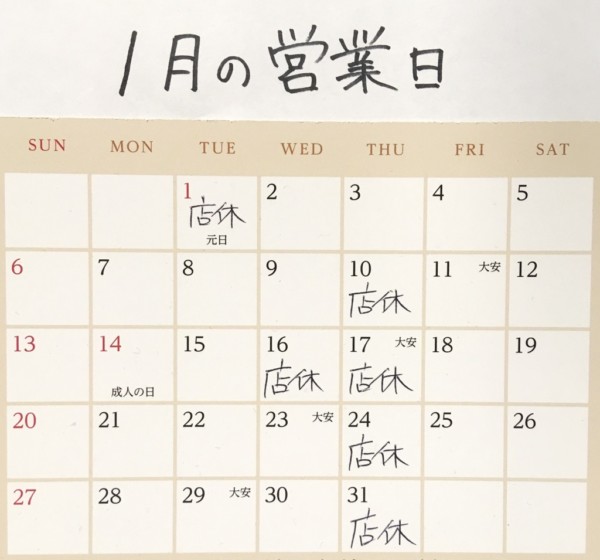 1月の営業日
SUN MON TUE WED THU FRI SAT
1 2 3 4 5
店休
元日
6 7 8 9 10 11 大安 12
店休
13 14 15 16 17 大安 18 19
店休 店休
成人の日
20 21 22 23 大安 24 25 26
店休
27 28 29 大安 30 31
店休